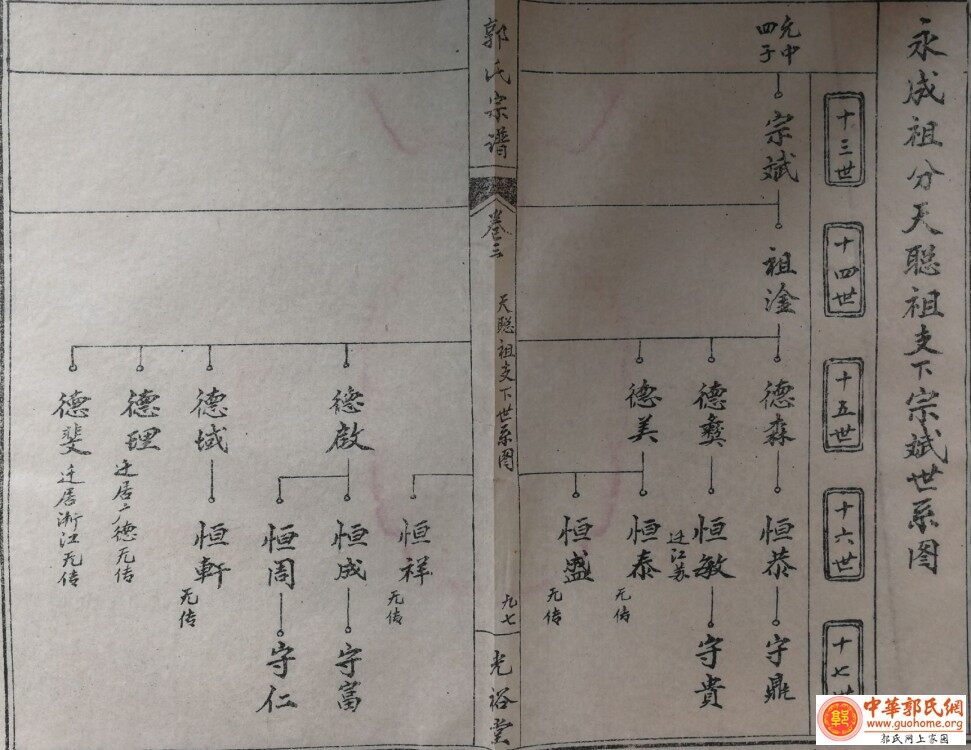 永成祖分天聪祖支下宗斌世系图
十三世
十四世
十五世
十六世
十七世
允中
四子
宗斌
祖淦
德森
德彝
德美
恒恭
恒敏
迁江苏
恒泰
无传
恒盛
无传
守鼎
守貴
郭氏宗谱
卷三
天聪祖支下世系图
九七
光裕堂
德啟
德域
德理
迁居广德无传
德斐
迁居浙江无传
恒祥
无传
恒成
恒周
恒軒
无传
守富
守仁
中華郭氏網
www.guohome.org
郭氏网上家园